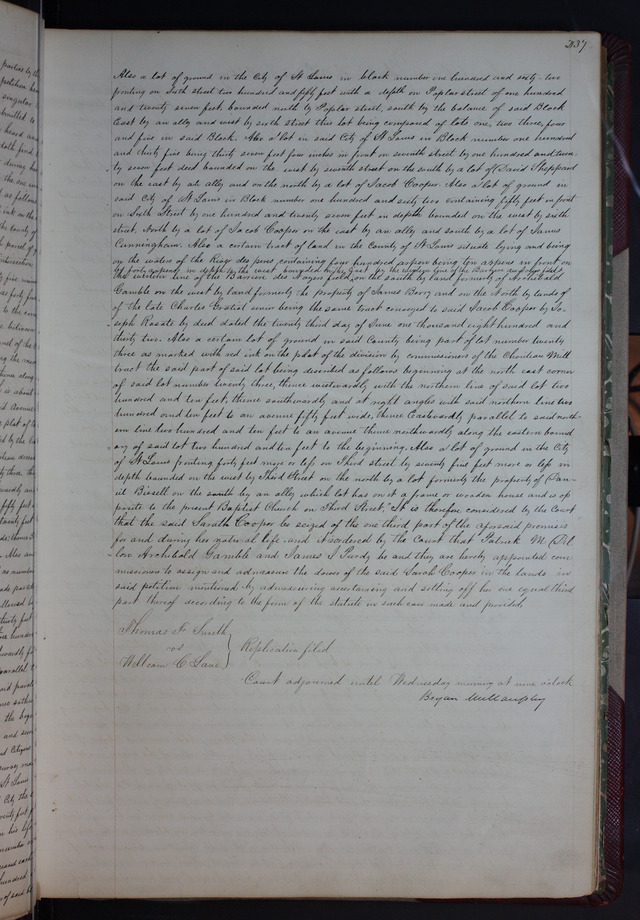 337
Also a lot of ground in the City of St Louis in block number one hundred and sixty-two
fronting on Sixth street two hundred and fifty feet with a depth on Poplar street of one hundred
and twenty seven feet, bounded north by Poplar street, south by the balance of said Block
East by an ally and west by sixth street this lot being composed of lots one, two, three, four
and five in said Block. Also a lot in said City of St Louis in Block number one hundred
and thirty five being thirty seven feet four inches in front on seventh street by one hundred and twen-
ty seven feet deed bounded on the west by seventh street on the south by a lot of David Sheppard
on the east by an ally and on the north by a lot of Jacob Cooper. Also a lot of ground in
said City of St Louis in Block number one hundred and sixty two containing fifty feet in front
on Sixth Street by one hundred and twenty seven feet in depth bounded on the west by sixth
street, North by a lot of Jacob Cooper on the east by an ally and south by a lot of James
Cunningham. Also a certain tract of land in the County of St Louis situate lying and being
on the waters of the River des peres containing four hundred arpens being ten arpens in front on
by forty arpens in depth to the west bounded on the East by the
the western line of the Barriere des Noyer field, on the south by land formerly of Archibald
Gamble on the west by land formerly the property of James Berry and on the North by lands of
of the late Charles Gratiot senior being the same tract conveyed to said Jacob Cooper by Jo-
seph Rosate by deed dated the twenty third day of June one thousand eight hundred and
thirty two. Also a certain lot of ground in said County being part of lot number twenty
three as marked with red ink on the plat of the division by commissioners of the Chouteau Mill
tract the said part of said lot being described as follows beginning at the north east corner
of said lot number twenty three, thence westwardly with the northern line of said lot two
hundred and ten feet thence southwardly and at right angles with said northern line two
hundred and ten feet to an avenue fifty feet wide, thence Eastwardly parallel to said north-
ern line two hundred and ten feet to an avenue thence northwardly along the eastern bound
ary of said lot two hundred and ten feet to the beginning. Also a lot of ground in the City
of St Louis fronting forty feet more or less on Third street by seventy five feet more or less in
depth bounded on the west by Third Street on the north by a lot formerly the property of Dan-
iel Bissell on the south by an ally, which lot has on it a frame or wooden house and is op
posite to the present Baptist Church on Third Street." It is therefore considered by the Court
that the said Sarah Cooper be seized of the one third part of the aforsaid premises
for and during her natural life and it is ordered by the Court that Patrick M. Dil
lon Archibald Gamble and James J Purdy be and they are hereby appointed com
missioners to assign and admeasure the dower of the said Sarah Cooper in the lands in
said petition mentioned by admeasuring ascertaining and setting off her one equal third
part thereof according to the form of the statute in such case made and provided,
Thomas F. Smith
vs
William C Lane
Replication filed
Court adjourned until Wednesday morning at nine o'clock
Bryan Mullanphy